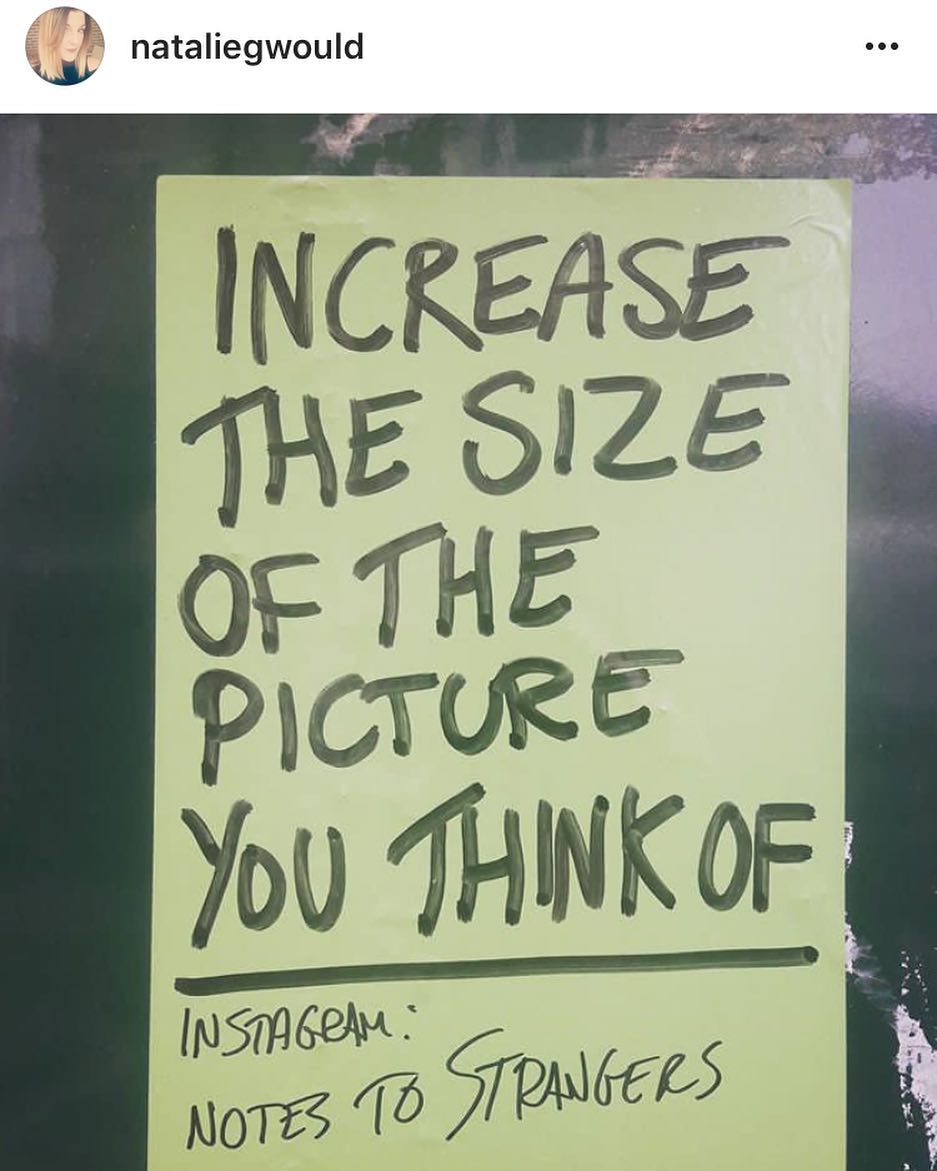 nataliegwould
INCREASE
THE SIZE
OF THE
PICTURE
YOU THINK OF
INSTAGRAM:
NOTES TO STRANGERS